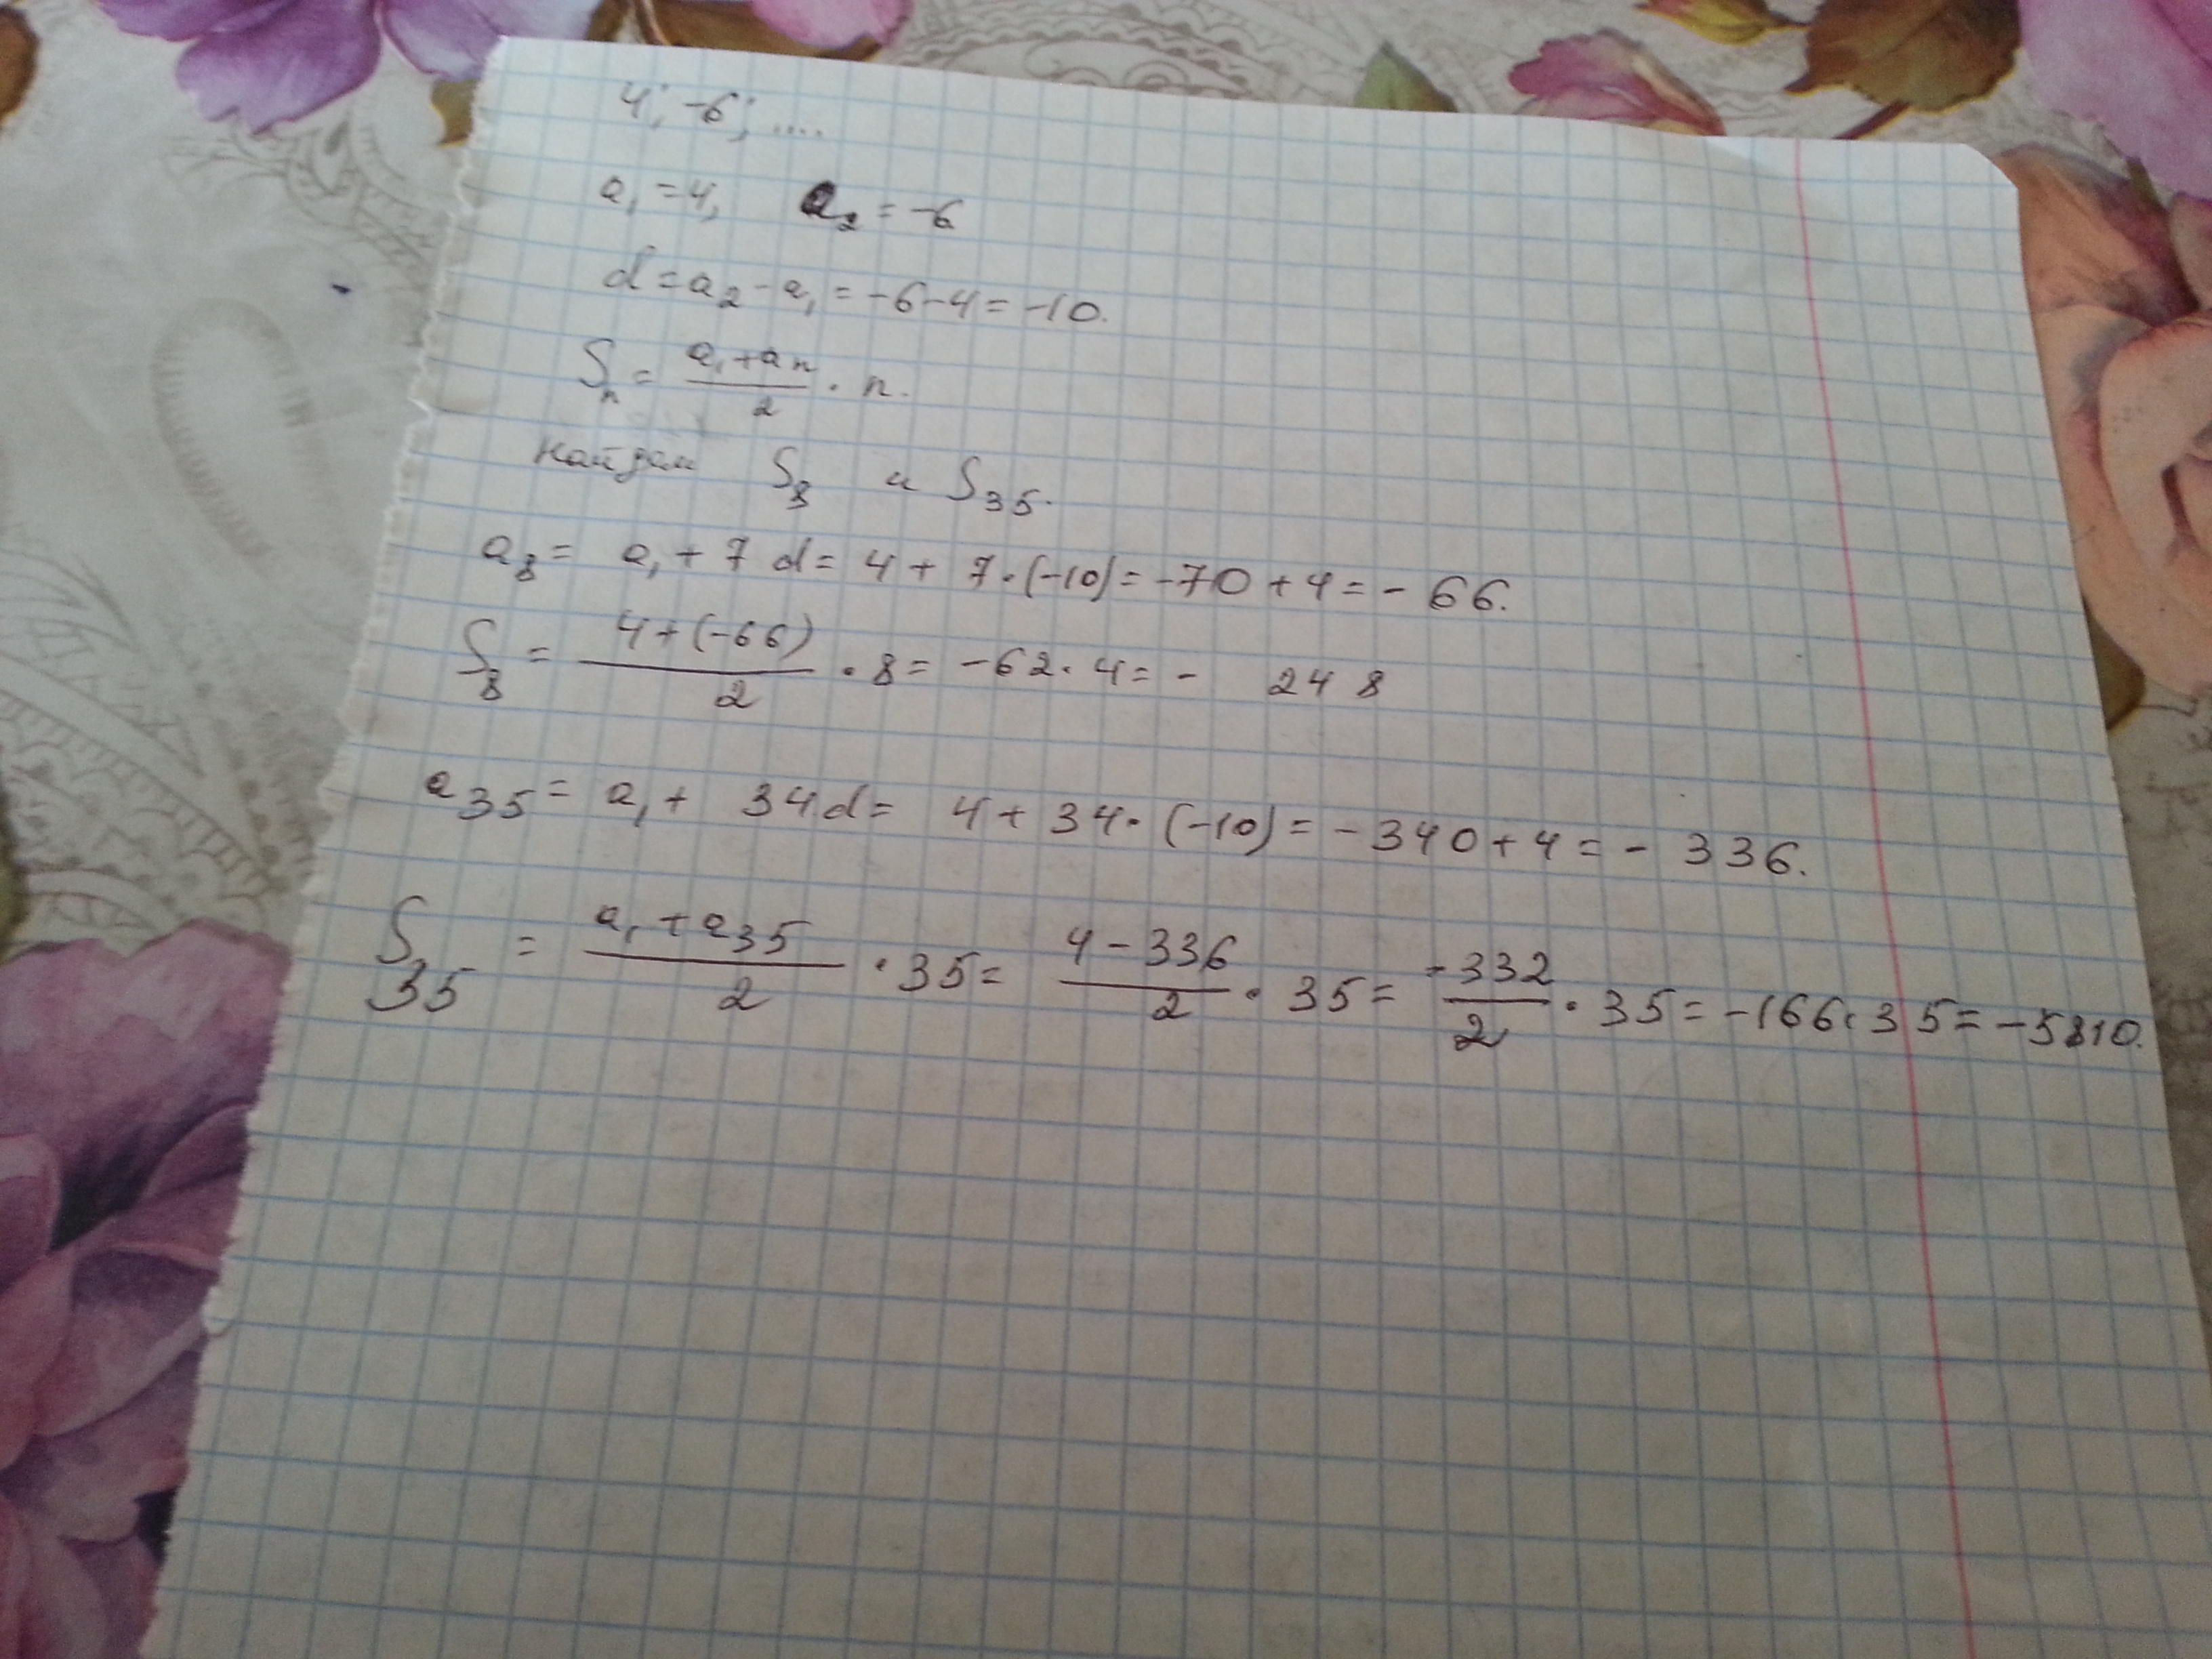 4; -6; ....
a₁ = 4, a₂ = -6
d = a₂ - a₁ = -6 - 4 = -10.
Sₙ = (a₁ + aₙ)/2 · n.
найдем S₈ и S₃₅.
a₈ = a₁ + 7d = 4 + 7·(-10) = -70 + 4 = -66.
S₈ = (4 + (-66))/2 · 8 = -62·4 = -248
a₃₅ = a₁ + 34d = 4 + 34·(-10) = -340 + 4 = -336.
S₃₅ = (a₁ + a₃₅)/2 · 35 = (4 - 336)/2 · 35 = -332/2 · 35 = -166·35 = -5810.